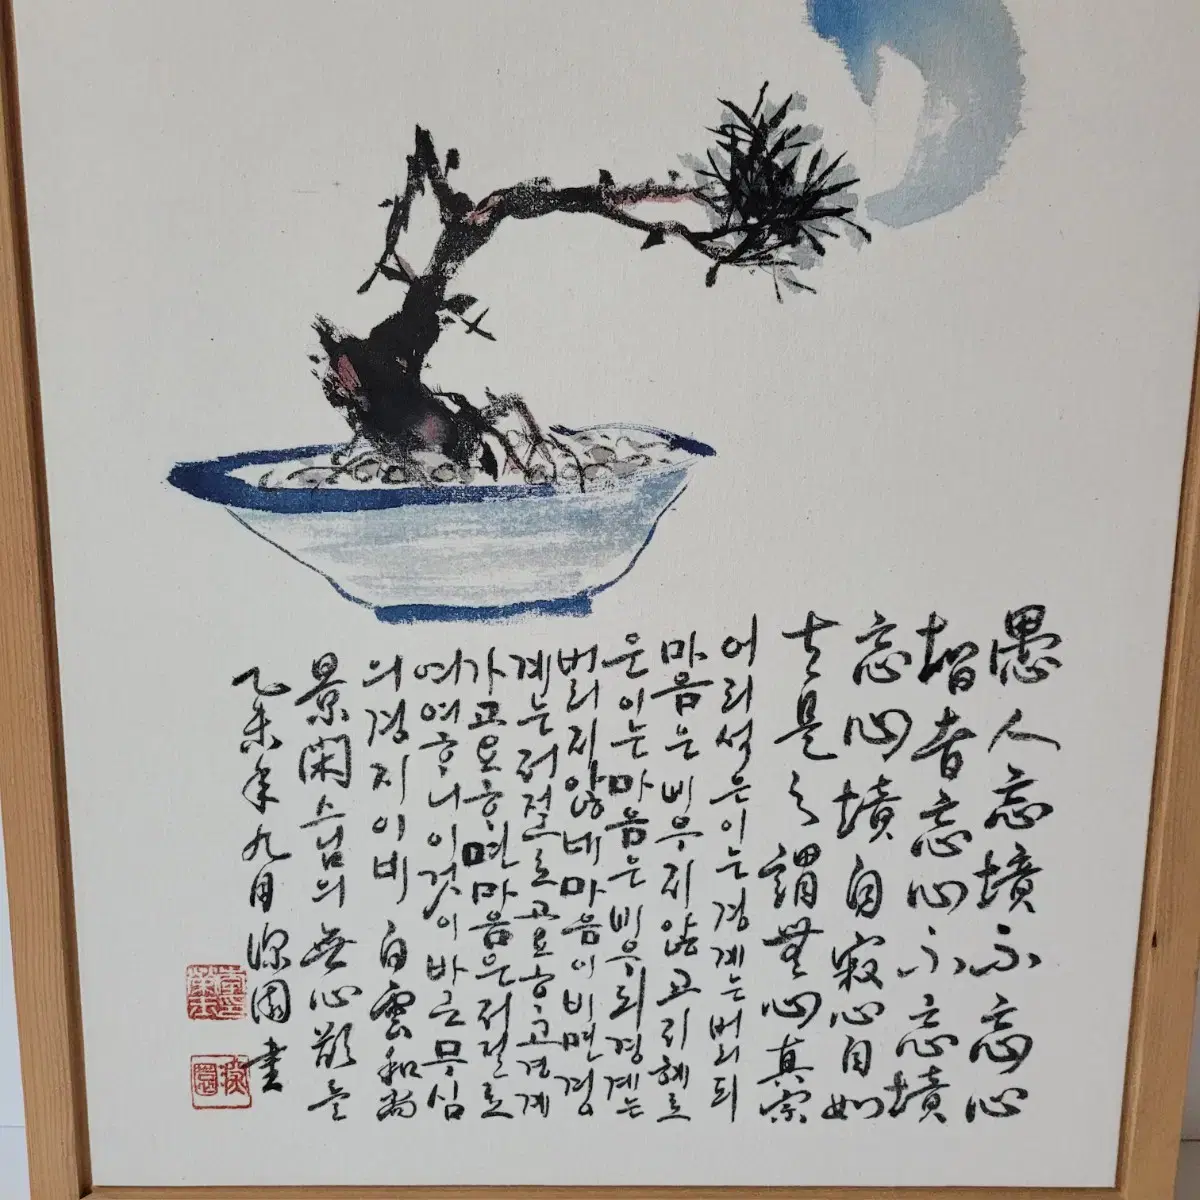 愚人忘境不忘心
智者忘心不忘境
忘心境自寂心自如
夫是之謂無心真宗
어리석은이는경계는버리되
마음은비우지않고지혜로
운이는마음은비우되경계는
버리지않네마음이비면경
계는저절로고요하고경계
가고요하면마음은저절로
여여하니이것이바른무심
의경지이니 白雲和尚
景閑스님의 無心歌를
乙未年九月 深園 書